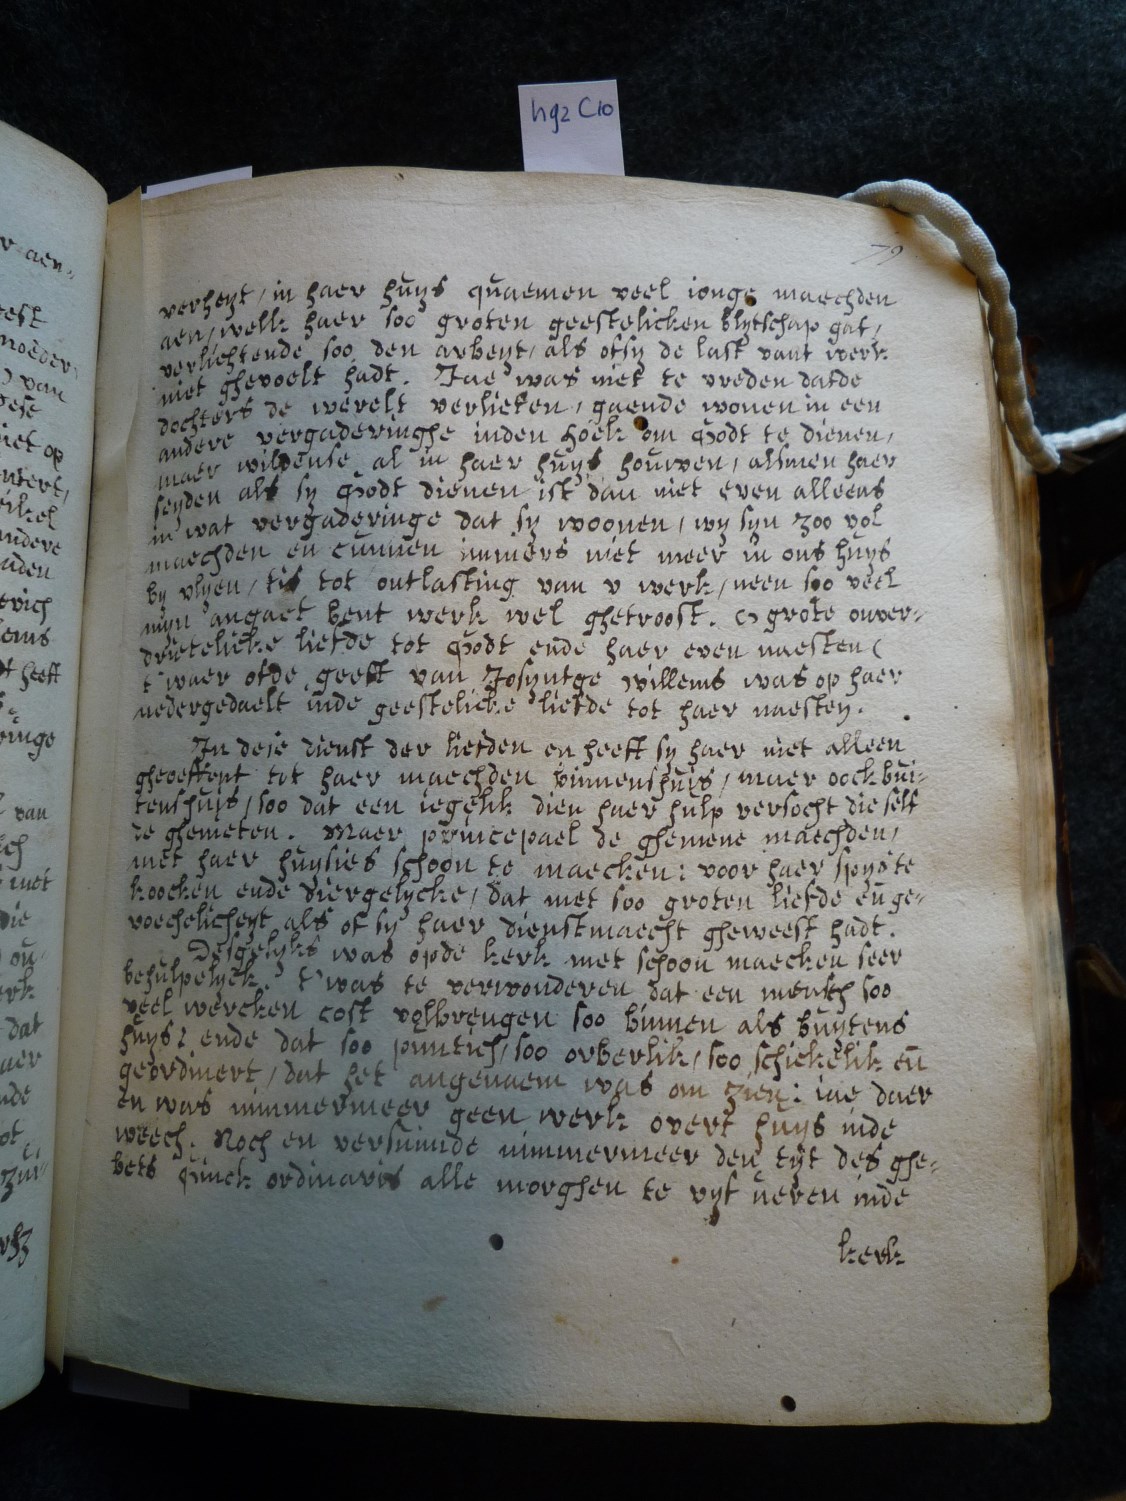 hg2 C10
79
verheyt / in haer huys quaemen veel ionge maechden
aen / welk haer soo groten geestelicken blytschap gaf,
verlichtende soo den arbeyt / als ofsy de last vant werk
niet ghevoelt hadt. Jae was niet te vreden datde
dochters de werelt verlieten, gaende wonen in een
andere vergaderinghe inden hoek om Godt te dienen,
maer wildense al in haer huys houwen / alsmen haer
seyden als sy Godt dienen ist dan niet even alleens
in wat vergaderinge dat sy woonen / wy syn zoo vol
maechden en cunnen immers niet meer in ons huys
by vlyen / tis tot ontlasting van v werk / neen soo veel
myn angaet bent werk wel ghetroost. O grote onver-
drietelicke liefde tot Godt ende haer even naesten (
t waer ofde geest van Josyntge willems was op haer
nedergedaelt inde geestelicke liefde tot haer naesten.
In dese dienst der liefden en heeft sy haer niet alleen
gheoeffent tot haer maechden binnenshuis / maer oock bui-
tenshuys / soo dat een iegelik dien haer hulp versocht die self
de ghenieten. Maer princepael de ghemene maechden,
met haer huysies schoon te maecken: voor haer spyste
koocken ende diergelycke / dat met soo groten liefde en ge-
voechelicheyt als of sy haer dienstmaecht gheweest hadt.
Desgelyks was opde kerk met schoon maecken seer
behulpelyck. t was te verwonderen dat een mensch soo
veel wercken cost volbrengen soo binnen als buytens
huys? ende dat soo puntich / soo orberlik / soo schickelik en
geordinert / dat het angenaem was om zien: iae daer
en was nimmermeer geen werk overt huys inde
weech. Noch en versuimde nimmermeer den tyt des ghe-
bets ginck ordinaris alle morghen te vyf ueren inde
kerk